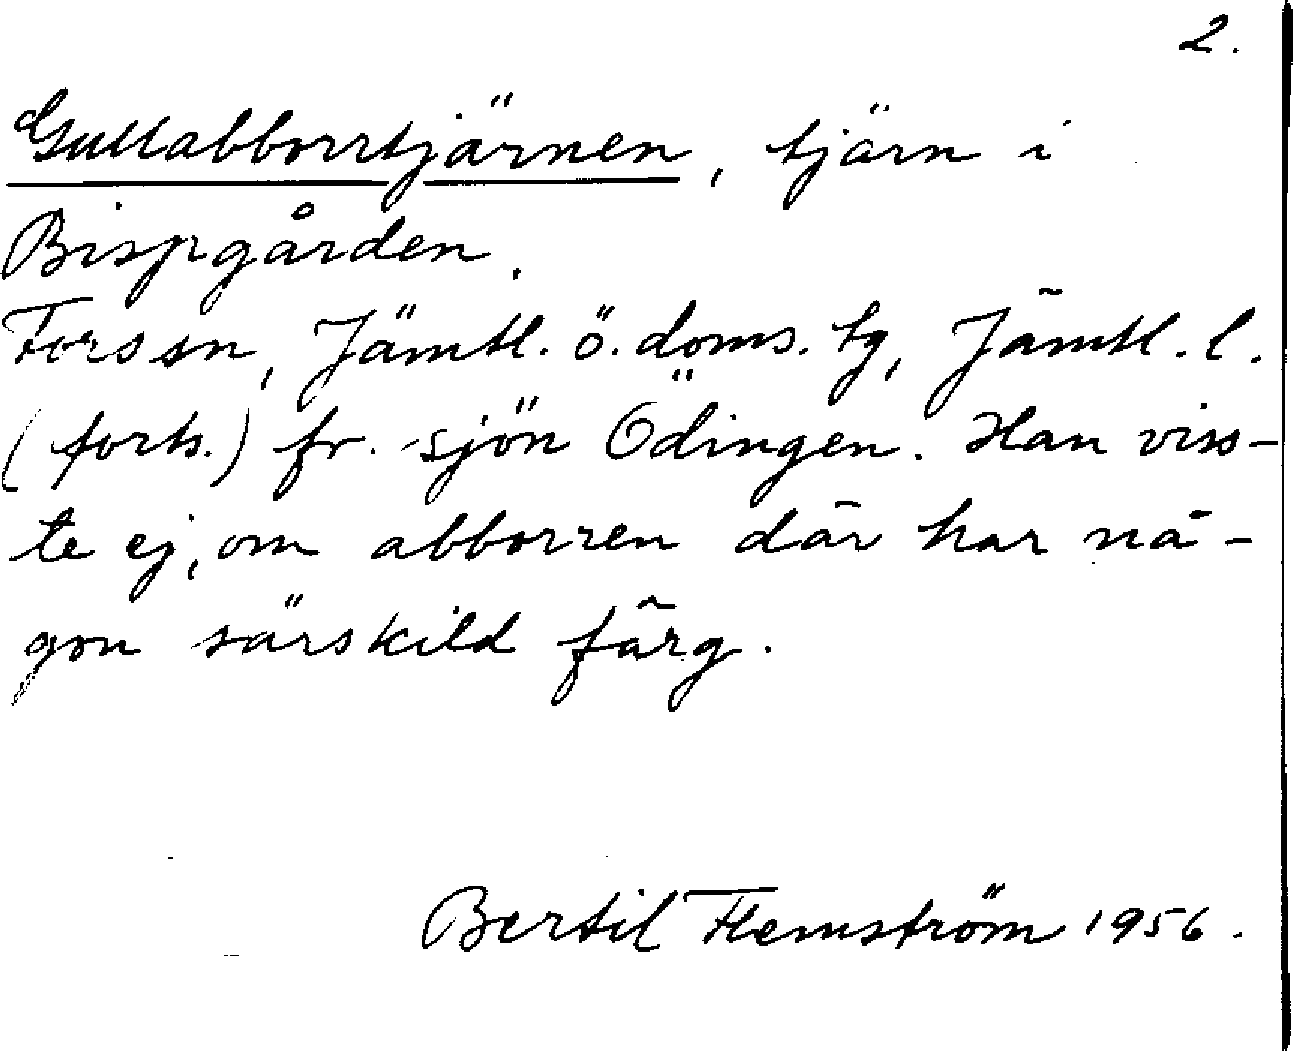 2.
Gullabborrtjärnen, tjärn i
Bispgården.
Fors sn, Jämtl. ö. doms. tg, Jämtl. l.
(forts.) fr. sjön Ödingen. Han viss-
te ej, om abborren där har nå-
gon särskild färg.
Bertil Flemström 1956.